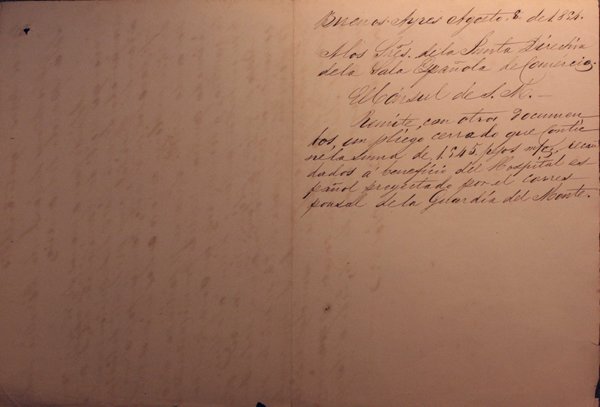 Buenos Ayres Agosto 8 de 18
A los Sres. de la Junta Directiva
de la Sala Española de Comercio.
El Cónsul de S. M. —
Remite, con otros documen
tos, un pliego cerrado que contie
ne la suma de 1545 pesos m/c. recau
dados á beneficio del Hospital es
pañol proyectado por el corres
ponsal de la Guardia del Monte.